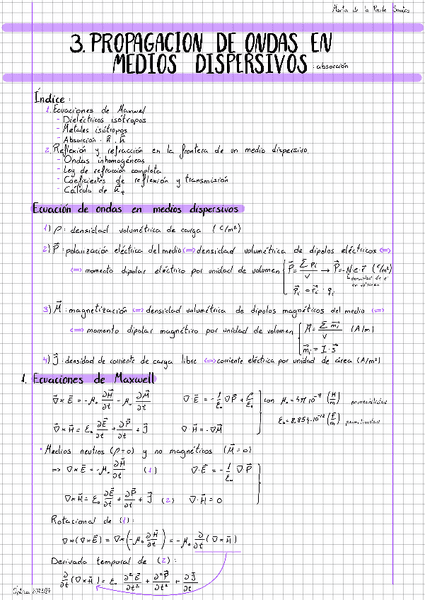 3. PROPAGACION DE ONDAS EN
MEDIOS DISPERSIVOS : absorción
Índice:
1. Ecuaciones de Maxwell
- Dieléctricos isótropos
- Metales isótropos
- Absorción - ñ, k̃
2. Reflexión y refracción en la frontera de un medio dispersivo
- Ondas inhomogéneas
- Ley de refracción completa
- Coeficientes de reflexión y transmisión
- Cálculo de
Ecuación de ondas en medios dispersivos
1) ρ: densidad volumétrica de carga (C/m³)
2) P⃗: polarización eléctrica del medio ⇔ densidad volumétrica de dipolos eléctricos ⇔
⇔ momento dipolar eléctrico por unidad de volumen
3) M⃗: magnetización ⇔ densidad volumétrica de dipolos magnéticos del medio ⇔
⇔ momento dipolar magnético por unidad de volumen (A/m)
4) J⃗ densidad de corriente de carga libre ⇔ corriente eléctrica por unidad de área (A/m²)
1. Ecuaciones de Maxwell
∇×E⃗ = -μ₀ ∂H⃗/∂t - μ₀ ∂M⃗/∂t ∇·E⃗ = -1/ε₀ ∇·P⃗ + ρ/ε₀ con
∇×H⃗ = ε₀ ∂E⃗/∂t + ∂P⃗/∂t + J⃗ ∇·H⃗ = -∇·M⃗
· Medios neutros (ρ=0) y no magnéticos (M⃗=0)
⇒ ∇×E⃗ = -μ₀ ∂H⃗/∂t (1) ∇·E⃗ = -1/ε₀ ∇·P⃗
∇×H⃗ = ε₀ ∂E⃗/∂t + ∂P⃗/∂t + J⃗ (2) ∇·H⃗ = 0
Rotacional de (1):
∇×(∇×E⃗) = ∇×(-μ₀ ∂H⃗/∂t) = -μ₀ ∂/∂t (∇×H⃗)
Derivada temporal de (2):
∂/∂t (∇×H⃗) = ε₀ ∂²E⃗/∂t² + ∂²P⃗/∂t² + ∂J⃗/∂t